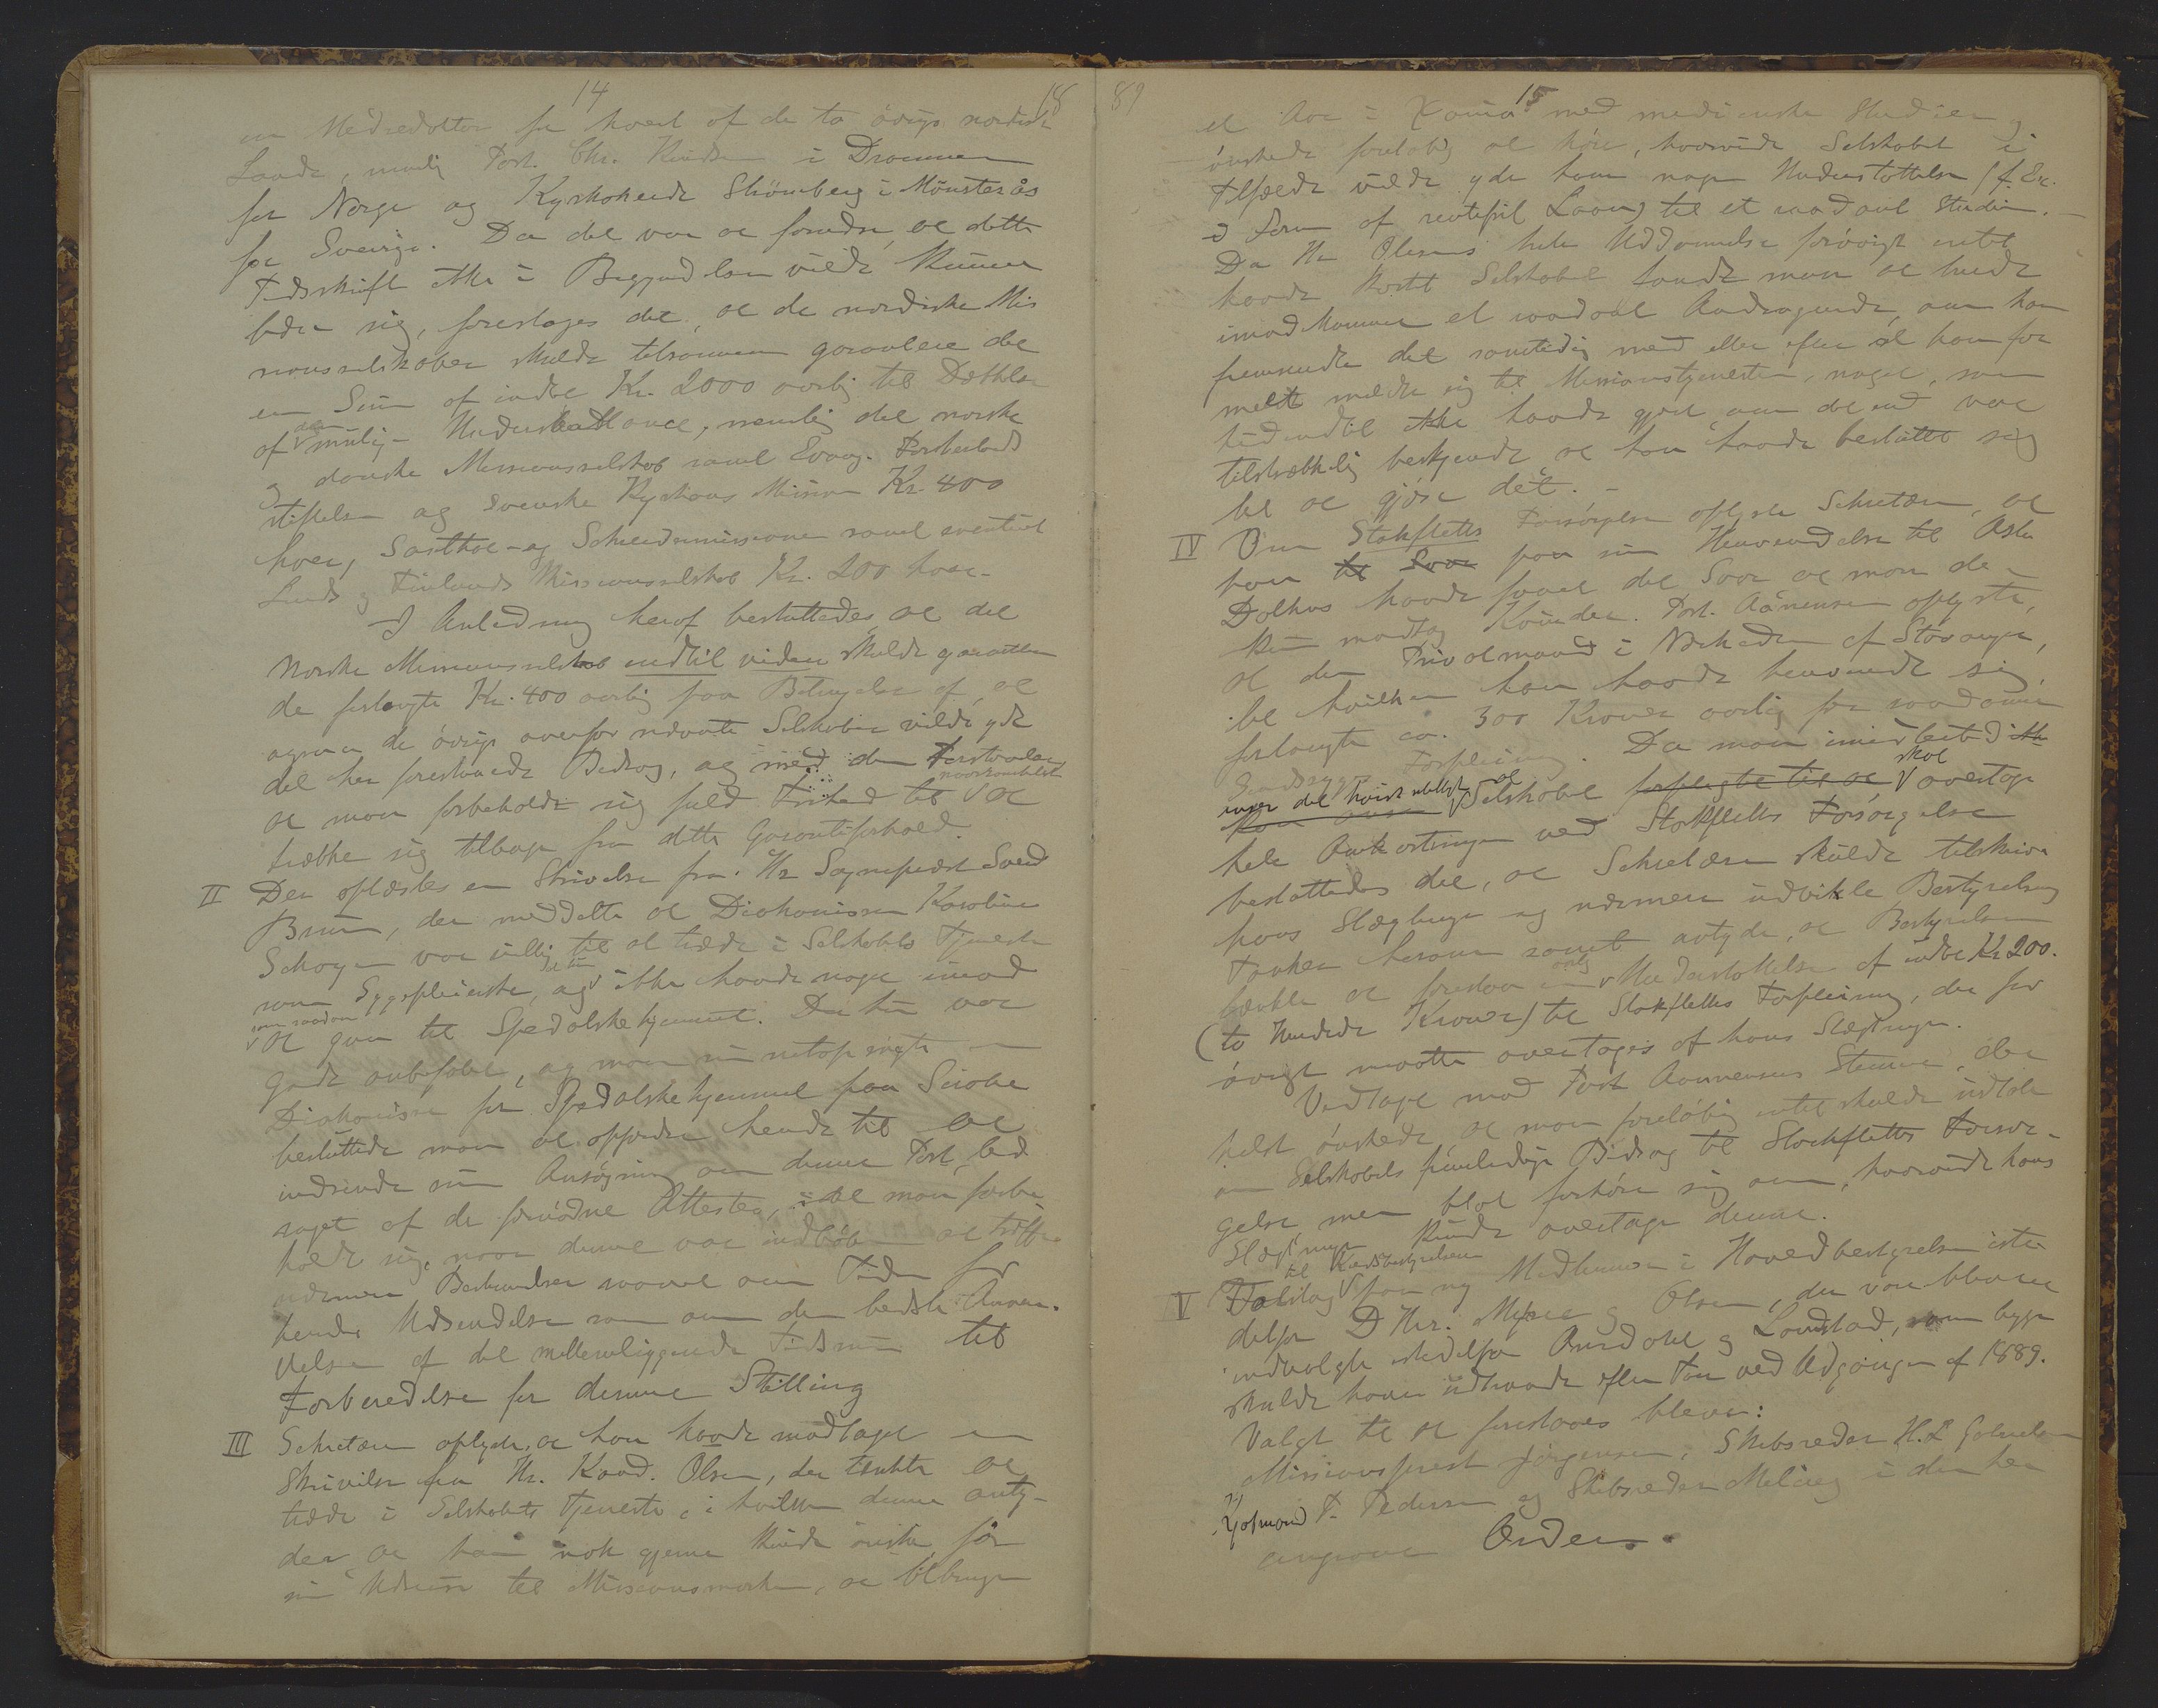 14
18
en Medredaktør for hvert af de to øvrige nordiske
Lande, nemlig Past. Chr. Knudsen i Drammen
for Norge og Kyrkoherde Strömberg i Mönsterås
for Sverige. Da det var at forudse, at dette
Tidsskrift ikke i Begyndelsen vilde kunne
bære sig, foresloges det, at de nordiske Mis
sionsselskaber skulde tilsammen garantere det
en Sum af indtil Kr. 2000 aarlig til Dækkelse
af den mulige Underballance, nemlig det norske
og danske Missionsselskab samt Evang. Fosterlands
stiftelsen og Svenske Kyrkans Mission Kr. 400
hver, Santhal- og Schreudermissionen samt eventuelt
Lunds og Finlands Missionsselskab Kr. 200 hver.
I Anledning heraf besluttedes, at det
Norske Missionsselskab indtil videre skulde garantere
de forlangte Kr. 400 aarlig paa Betingelse af, at
ogsaa de øvrige ovenfor nævnte Selskaber vilde yde
det her foreslaaede Bidrag, og med den Forstaaelse
at man forbeholdt sig fuld Frihed til naarsomhelst at
trække sig tilbage fra dette Garantiforhold.
II Der oplæstes en Skrivelse fra Hr. Sognepræst Sven
Bruun, der meddelte at Diakonisse Karoline
Schøyen var villig til at træde i Selskabets Tjeneste
som Sygepleierske, og at hun ikke havde noget imod
som saadan at gaa til Spedalskehjemmet. Da hun var
godt anbefalet, og man nu netop søgte en
Diakonisse for Spedalskehjemmet paa Sirabe
besluttede man at opfordre hende til at
indsende sin Ansøgning om denne Post, led
saget af de fornødne Attester, idet man forbe
holdt sig, naar denne var indløben at træffe
nærmere Bestemmelser saavel om Tiden for
hendes Udsendelse som om den bedste Anven-
delse af det mellemliggende Tidsrum til
Forberedelse for denne Stilling
III Sekretæren oplyste, at han havde modtaget en
Skrivelse fra Hr. Kand. Olsen, der tænkte at
træde i Selskabets Tjeneste, i hvilken denne anty-
der at han nok gjerne kunde ønske før
sin Udreise til Missionsmarken, at tilbringe
89
15
et Aar i Xania med medicinske Studier og
ønskede foreløbig at høre, hvorvidt Selskabet i
Tilfælde vilde yde ham nogen Understøttelse (f. Ex.
i Form af rentefrit Laan) til et saadant Studium.
Da Hr Olsens hele Uddannelse forøvrigt intet
havde kostet Selskabet fandt man at burde
imødekomme et saadant Andragende, om han
fremsendte det samtidig med eller efter at han for
melt meldte sig til Missionstjenesten, noget, som
hidindtil ikke havde gjort, om det end var
tilstrækkelig bekjendt at han havde besluttet sig
til at gjøre det.
IV Om Stokfleths Forsørgelse oplyste Sekretæren, at
han til Svar paa sin Henvendelse til Asker
Dolhus havde faaet det Svar at man der
kun modtog Kvinder. Past. Aanensen oplyste,
at den Privatmand i Nærheden af Stavanger,
til hvilken han havde henvendt sig
forlangte ca. 300 Kroner aarlig for saadanne
Sindssyges Forpleining. Da man imidlertid ikke
kan anse det hensigtsmæssigt at Selskabet forpligte til at skal overtage
hele Omkostningen ved Stokfleths Forsørgelse
besluttedes det, at Sekretæren skulde tilskrive
hans Slægtninge og nærmere udvikle Bestyrelsens
Tanker herom samt antyde, at Bestyrelsen
tænkte at foreslaa en aarlig Understøttelse af indtil Kr 200.
(to Hundrede Kroner) til Stokfleths Forpleining, der for
øvrigt maatte overtages af hans Slægtninge.
Vedtaget mod Past Aanensens Stemme, der
helst ønskede at man foreløbig intet skulde udtale
om Selskabets fremtidige Bidrag til Stockfleths Forsør-
gelse men blot forhøre sig om, hvorvidt hans
Slægtninge kunde overtage denne.
V Forslag til Kredsbestyrelserne paa ny Medlemmer i Hovedbestyrelsen iste-
detfor DHrr. Meyer og Olsen, der vare blevne
indvalgte istedetfor Amdahl og Landstad, som begge
skulde have udtraadt efter Tur ved Udgangen af 1889.
Valgt til at foreslaaes bleve:
Missionsprest Jørgensen, Skibsreder H. L. Gabrielsen
Kjøbmand F. Pedersen og Skibsreder Meling i den her
angivne Orden.